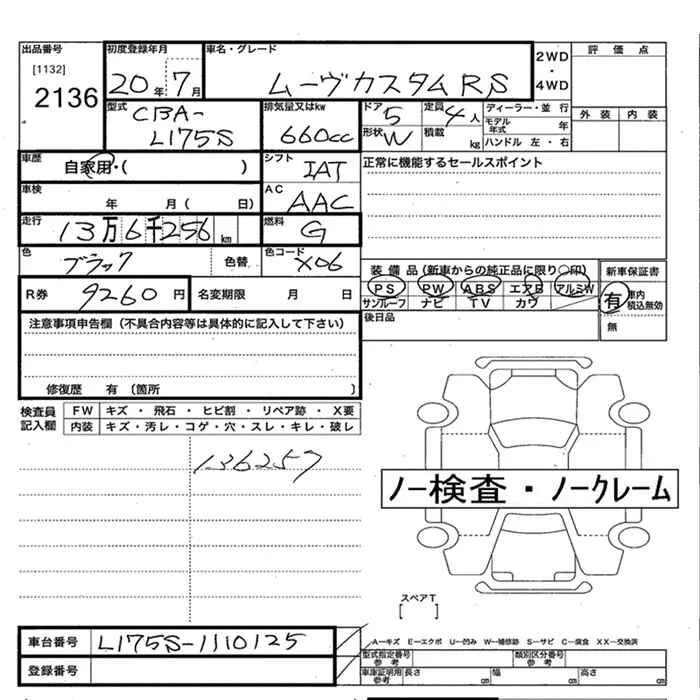 出品番号
[1132]
2136
初度登録年月
20年7月
車名・グレード
ムーヴカスタムRS
2WD
・
4WD
評価点
外装 内装
型式
CBA-
L175S
排気量又はkw
660cc
ドア
5
形状
W
定員
4人
積載
kg
ディーラー・並行
モデル年式 年
ハンドル 左・右
車歴
自家用・( )
シフト
IAT
正常に機能するセールスポイント
車検
年 月 ( 日)
AC
AAC
走行
13万6千256km
燃料
G
色
ブラック
色替
色コード
X06
装備品(新車からの純正品に限り○印)
PS PW ABS エアB アルミW
サンルーフ ナビ TV カワ
新車保証書
有
車内
税込無効
無
R券
9260円
名変期限 月 日
後日品
注意事項申告欄(不具合内容等は具体的に記入して下さい)
修復歴 有 〔箇所 〕
検査員
記入欄
FW キズ ・ 飛石 ・ ヒビ割 ・ リペア跡 ・ X要
内装 キズ・汚レ・コゲ・穴・スレ・キレ・破レ
136257
ノー検査・ノークレーム
スペアT
[ ]
車台番号
L175S-1110125
登録番号
A-キズ E-エクボ U-凹み W-補修跡 S-サビ C-腐食 XX-交換済
型式指定番号
参考
類別区分番号
参考
車庫証明用
参考
長さ cm 幅 cm 高さ cm